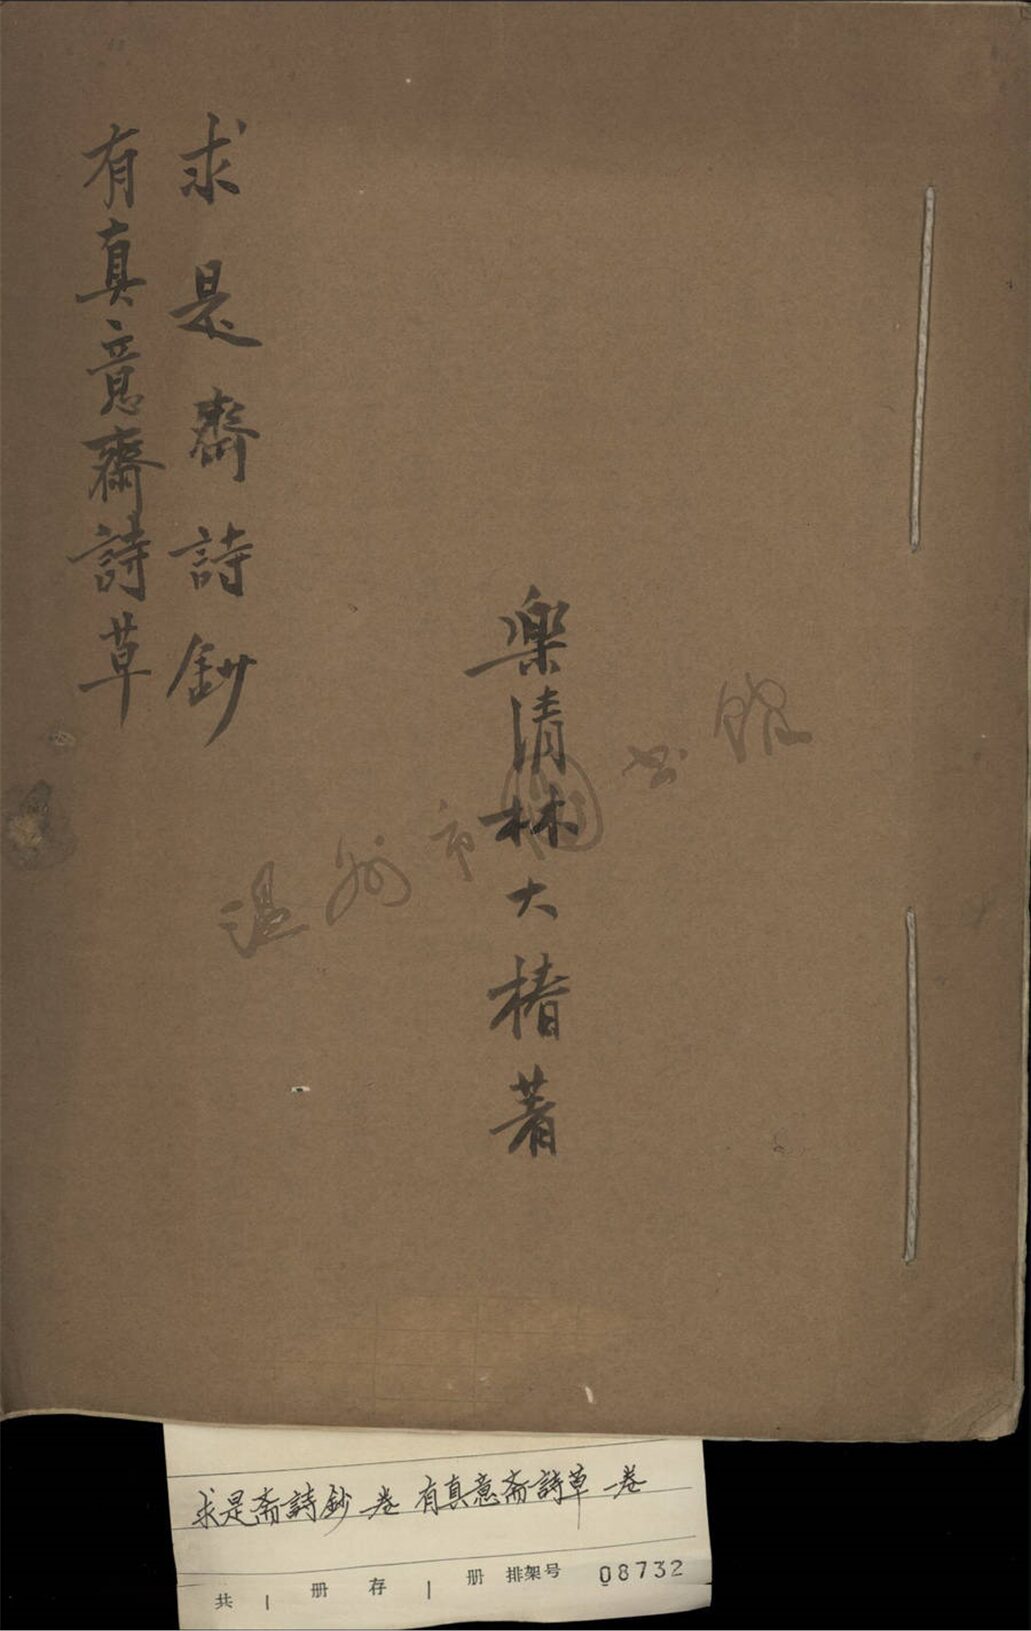 求是齋詩鈔
有真意齋詩草
樂清林大椿著
温州市图书馆
求是斋詩鈔一卷 有真意斋詩草一卷
共 1 册 存 1 册 排架号 08732